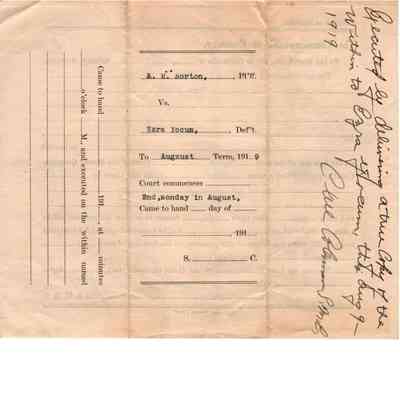 Came to hand
191 , at minutes
o'clock M., and executed on the within named
A. M. Norton, Pl'ff.
Vs.
Ezra Yocum, Def't.
To Augzust Term, 191 9
Court commences
2nd,monday in August,
Came to hand day of
, 191
S. C.
Executed by delivering a true Copy of the
within to Ezra Yocum this Aug 9–
1919